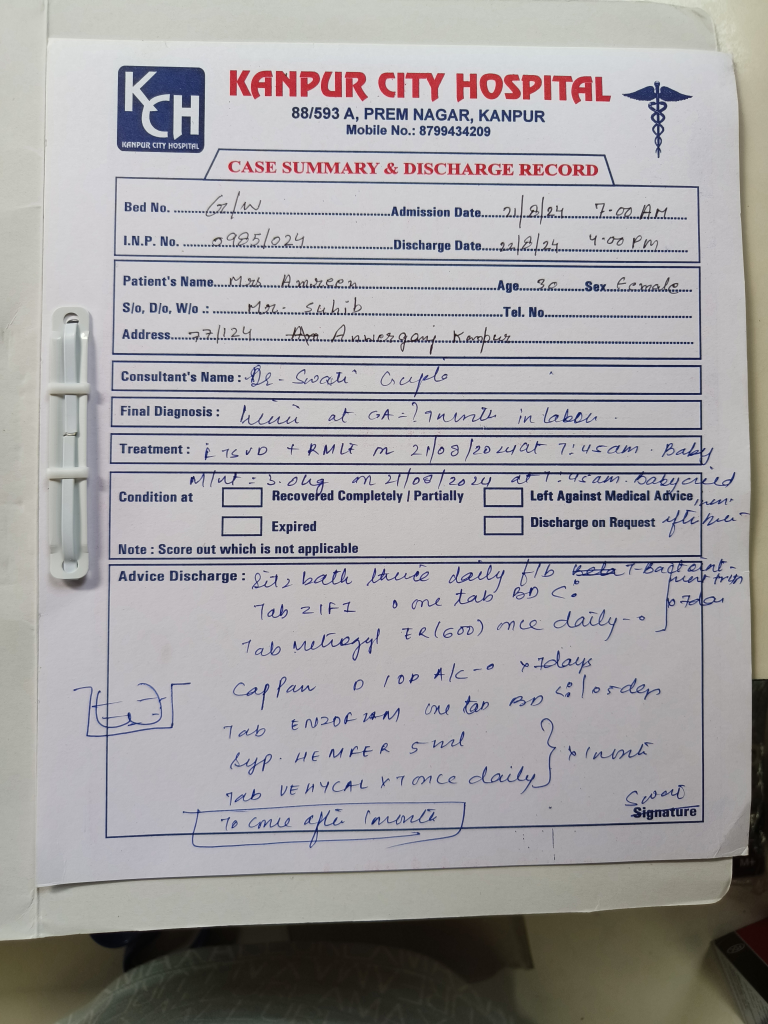 KCH
KANPUR CITY HOSPITAL
KANPUR CITY HOSPITAL
88/593 A, PREM NAGAR, KANPUR
Mobile No.: 8799434209
CASE SUMMARY & DISCHARGE RECORD
Bed No. G/W Admission Date 21/8/24 7-00 AM
I.N.P. No. 0985/024 Discharge Date 22/8/24 4:00 PM
Patient's Name Mrs Amreen Age 30 Sex Female
S/o, D/o, W/o .: Mr. Suhib Tel. No.
Address 77/124 Anwerganj Kanpur
Consultant's Name : Dr. Swati Gupta
Final Diagnosis : at GA = ? 9 month in labour.
Treatment : TSVD + RMLE on 21/08/2024 at 7:45am. Baby
M/wt = 3.0kg on 21/08/2024 at 7:45am. Baby cried
Condition at Recovered Completely / Partially Left Against Medical Advice
Expired Discharge on Request
Note : Score out which is not applicable
Advice Discharge : Sitz bath thrice daily f/b T-Bact oint-
ment x 7 days
Tab ZIFI one tab BD
Tab Metrogyl ER (600) once daily
Cap Pan D 1 OD A/C x 7 days
Tab ENZOFLAM one tab BD x 05 days
Syp. HEMFER 5 ml
Tab once daily x 1 month
To come after 1 month
Swati
Signature